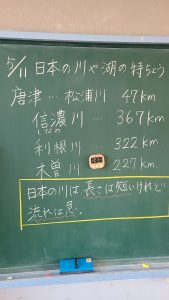 5/11 日本の川や湖の特ちょう
唐津…松浦川 47km
信濃川 … 367km
しなの
利根川 … 322km
木曽川 227km
日本の川は長さは短いけれど!!
流れは急。